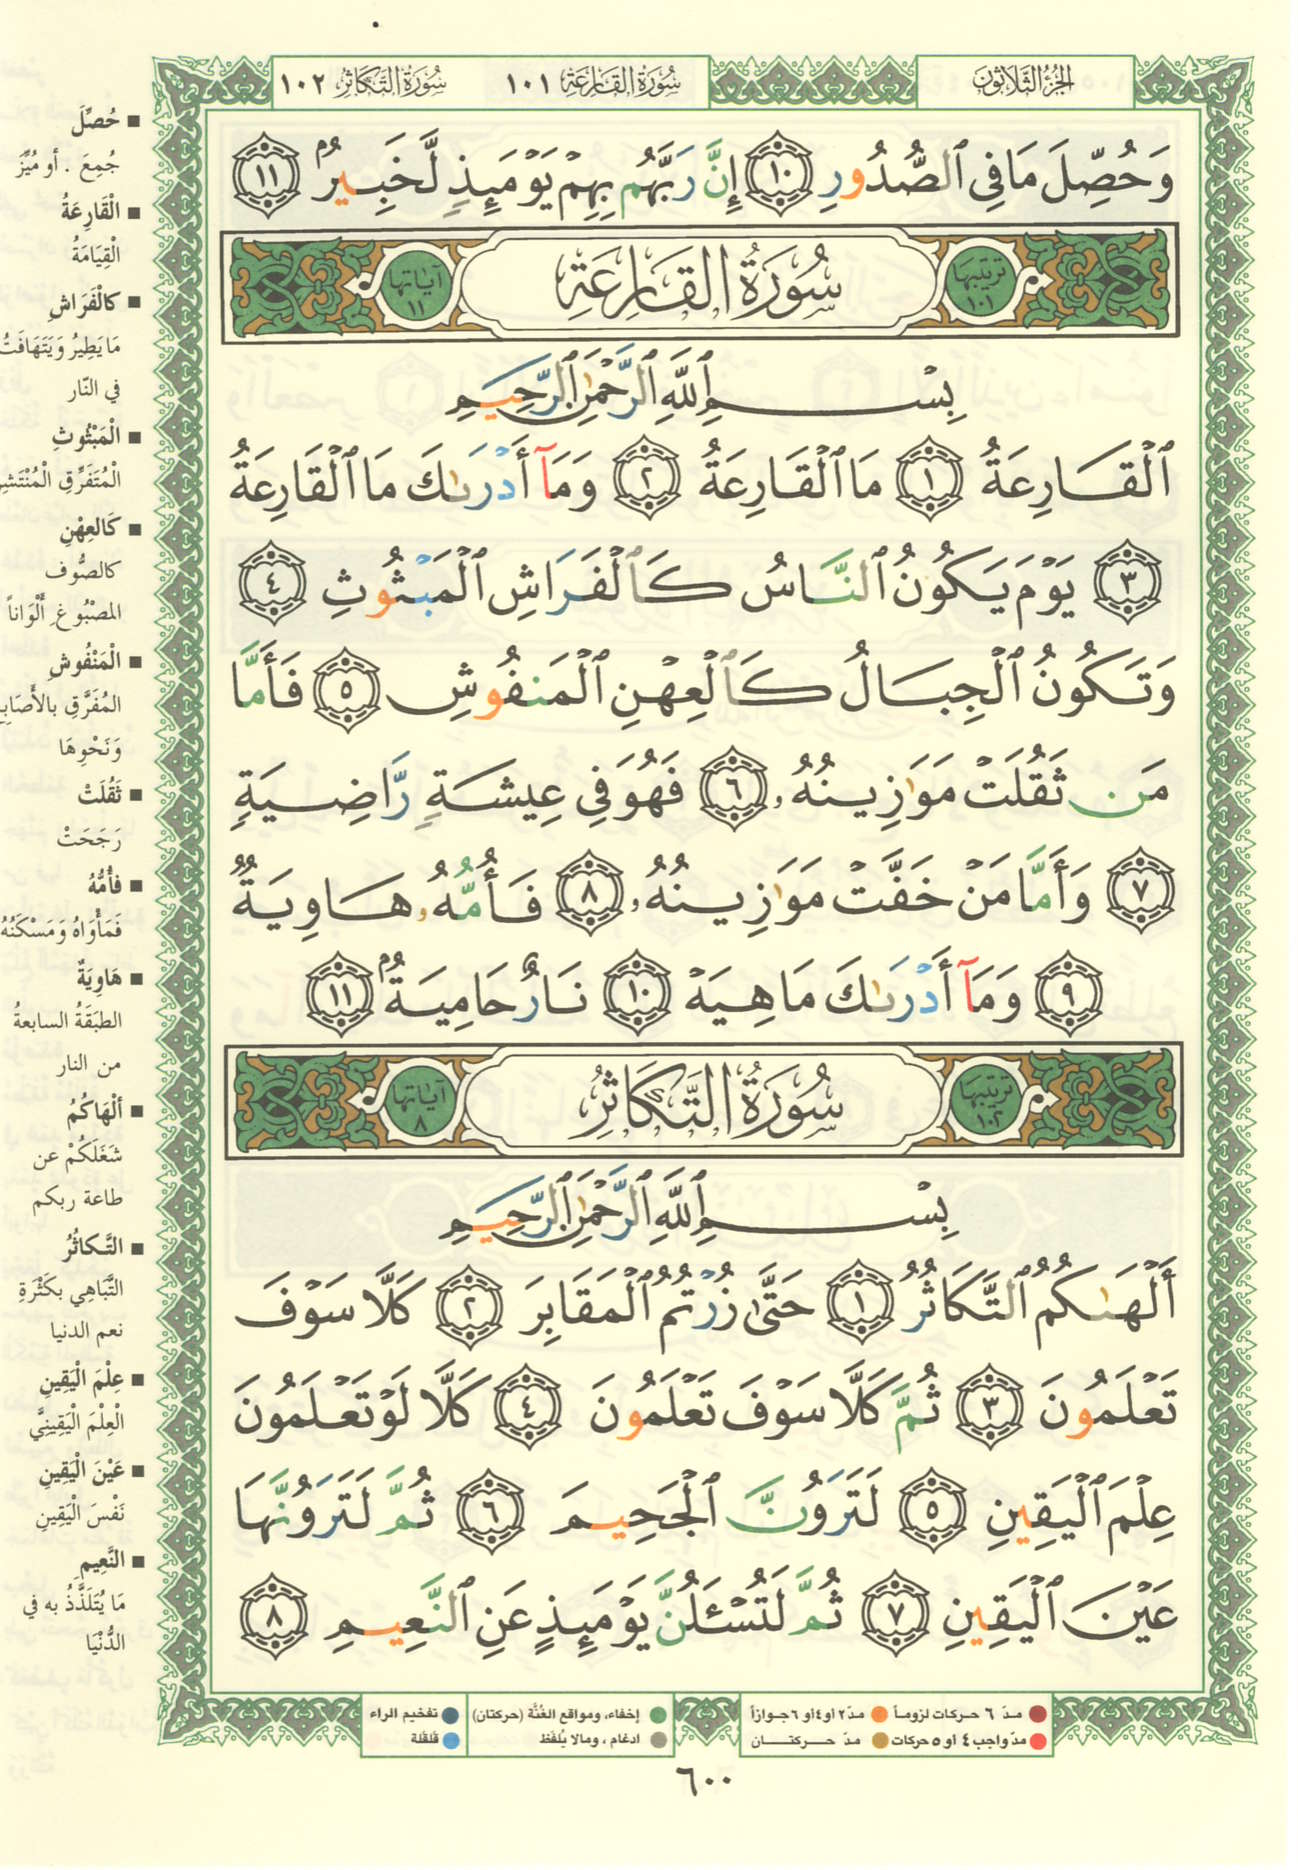 الجزء الثلاثون
سورة القارعة ١٠١
سورة التكاثر ١٠٢
وَحُصِّلَ مَا فِى ٱلصُّدُورِ ١٠ إِنَّ رَبَّهُم بِهِمْ يَوْمَئِذٍ لَّخَبِيرٌۢ ١١
ترتيبها ١٠١ سُورَةُ القَارِعَةِ آياتها ١١
بِسْمِ ٱللَّهِ ٱلرَّحْمَٰنِ ٱلرَّحِيمِ
ٱلْقَارِعَةُ ١ مَا ٱلْقَارِعَةُ ٢ وَمَآ أَدْرَىٰكَ مَا ٱلْقَارِعَةُ
٣ يَوْمَ يَكُونُ ٱلنَّاسُ كَٱلْفَرَاشِ ٱلْمَبْثُوثِ ٤
وَتَكُونُ ٱلْجِبَالُ كَٱلْعِهْنِ ٱلْمَنفُوشِ ٥ فَأَمَّا
مَن ثَقُلَتْ مَوَٰزِينُهُۥ ٦ فَهُوَ فِى عِيشَةٍ رَّاضِيَةٍ
٧ وَأَمَّا مَنْ خَفَّتْ مَوَٰزِينُهُۥ ٨ فَأُمُّهُۥ هَاوِيَةٌ
٩ وَمَآ أَدْرَىٰكَ مَا هِيَهْ ١٠ نَارٌ حَامِيَةٌۢ ١١
ترتيبها ١٠٢ سُورَةُ التَّكَاثُرِ آياتها ٨
بِسْمِ ٱللَّهِ ٱلرَّحْمَٰنِ ٱلرَّحِيمِ
أَلْهَىٰكُمُ ٱلتَّكَاثُرُ ١ حَتَّىٰ زُرْتُمُ ٱلْمَقَابِرَ ٢ كَلَّا سَوْفَ
تَعْلَمُونَ ٣ ثُمَّ كَلَّا سَوْفَ تَعْلَمُونَ ٤ كَلَّا لَوْ تَعْلَمُونَ
عِلْمَ ٱلْيَقِينِ ٥ لَتَرَوُنَّ ٱلْجَحِيمَ ٦ ثُمَّ لَتَرَوُنَّهَا
عَيْنَ ٱلْيَقِينِ ٧ ثُمَّ لَتُسْـَٔلُنَّ يَوْمَئِذٍ عَنِ ٱلنَّعِيمِ ٨
■ حُصِّلَ
جُمِعَ . أو مُيِّزَ
■ الْقَارِعَةُ
الْقِيَامَةُ
■ كالْفَرَاشِ
مَا يَطِيرُ وَيَتَهَافَتُ
في النّار
■ الْمَبْثُوثِ
الْمُتَفَرِّقِ الْمُنْتَشِرِ
■ كَالعِهْنِ
كالصُّوف
المصْبُوغ ِ أَلْوَاناً
■ الْمَنْفُوشِ
المُفَرَّقِ بالأَصَابِعِ
وَنَحْوِهَا
■ ثَقُلَتْ
رَجَحَتْ
■ فأُمُّهُ
فَمَأْوَاهُ وَمَسْكَنُهُ
■ هَاوِيَةٌ
الطبَقَةُ السابعةُ
من النار
■ ألْهَاكُمُ
شَغَلَكُمْ عن
طاعة ربكم
■ التَّكاثُرُ
التَّبَاهِي بكَثْرَةِ
نعم الدنيا
■ عِلْمَ الْيَقِينِ
الْعِلْمَ الْيَقِينِيَّ
■ عَيْنَ الْيَقِينِ
نَفْسَ الْيَقِينِ
■ النَّعِيمِ
مَا يُتَلَذَّذُ به في
الدُّنْيَا
مدّ ٦ حركات لزوماً مدّ ٢ أو ٤ أو ٦ جوازاً إخفاء، ومواقع الغُنَّة (حركتان) تفخيم الراء
مدّ واجب ٤ أو ٥ حركات مدّ حركتان ادغام ، ومالا يُلفَظ قلقلة
٦٠٠